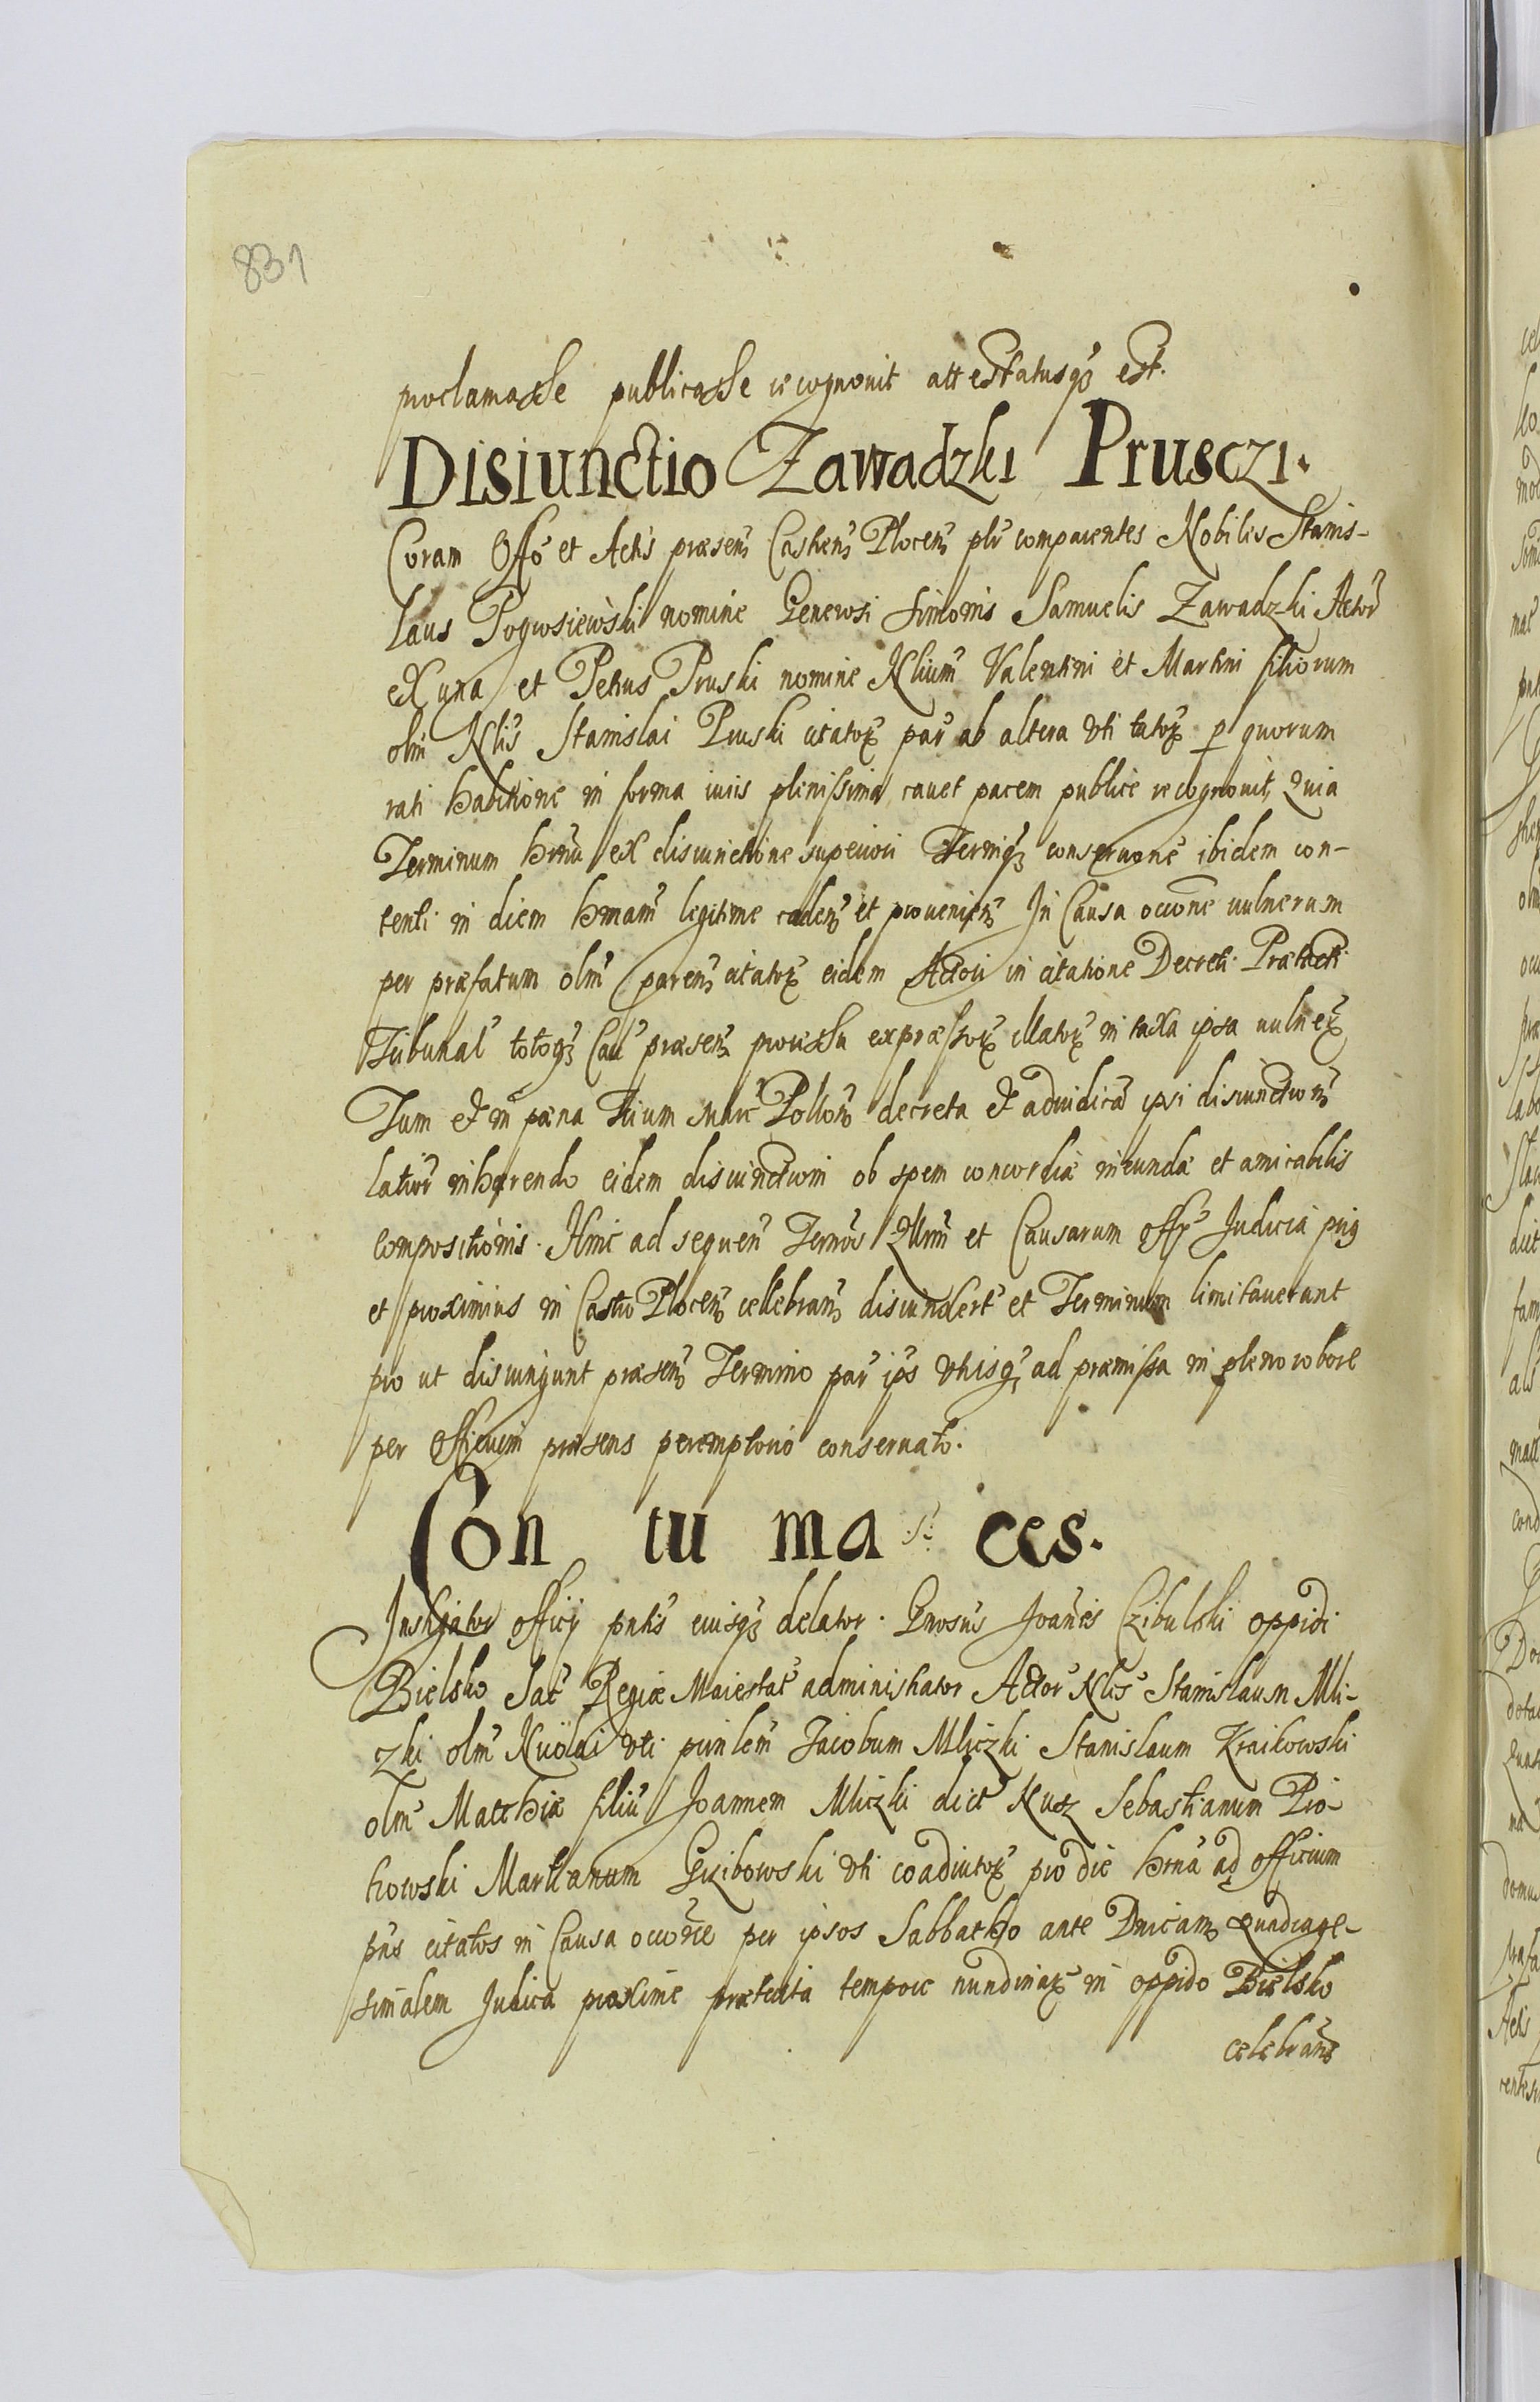 831
proclamasse publicasse recognovit attestatusq₃ est.
Disiunctio Zawadzki Prusczi.
Coram Offo et Actis præsen Castren Plocen plr comparentes Nobilis Stanis-
laus Pogrosiewski nomine Generosi Simonis Samuelis Zawadzki Actor
ex una et Petrus Pruski nomine Nlium Valentini et Martini filiorum
olim Nlis Stanislai Pruski citator par ab altera uti tator p quorum
rati habitione in forma iuris plenissima cavet parem publice recognovit, Quia
Terminum hrnu ex disiunctione superiori Termiq₃ conseruone ibidem con-
tenti in diem hrnam legitime caden et provenien In Causa occone vulnerum
per præfatum olim paren citator eidem Actori in citatione Decreti Prætacti
Tribunal totoq₃ Cau præsen processu expressor illator in taxa ipsa vulner
Tum et in pæna Trium Marc Pollon decreta et adiudica ipsi disiunction
latior inhærendo eidem disiunctioni ob spem concordiæ ineundæ et amicabilis
compositionis. Hinc ad sequen Termos Qllrum et Causarum offy Judicia prius
et proximius in Castro Plocen cellebran disiunxert et Terminum limitaverunt
pro ut disiungunt præsen Termino par ips utrisq₃ ad præmissa in pleno robore
per Officium præsens peremptorio conservato.
Con tu ma ces.
Instigator officij pntis eiusq₃ delator. Grosus Joannis Czibulski oppidi
Bielsko Sac Regiæ Maiestat administrator Actor Nlis Stanislaum Mli-
zki olm Nicolai uti prinlem Jacobum Mliczki Stanislaum Kraikowski
olm Matthiæ filiu Joannem Mliczki dict Kusz Sebastianum Pio-
trowski Martianum Grzibowski uti coadiutor pro die hrna ad officium
pns citatos in Causa occone per ipsos Sabbatho ante Dnicam Quadrage-
simalem Judica proxime præterita tempore nundinar in oppido Bielsko
celebran